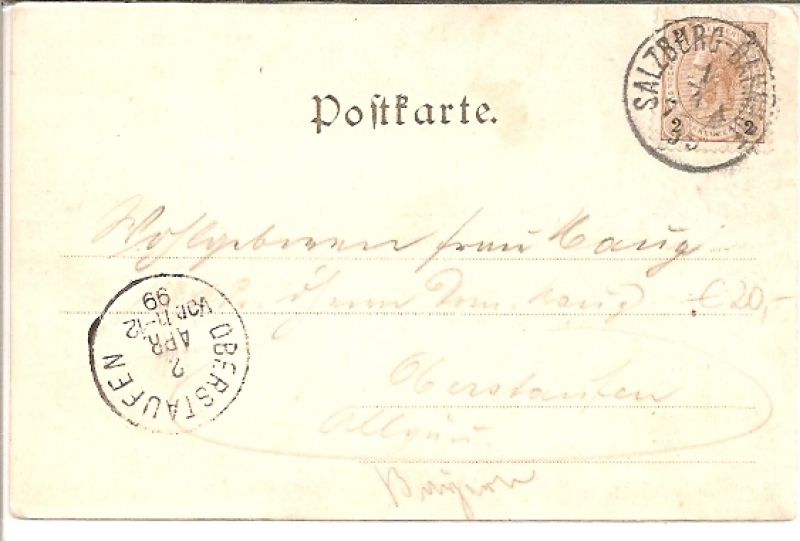 SALZBURG-BAHNHOF
1
4
99
2 2
Postkarte.
Wohlgeboren Frau Haug
Herrn Dom. Haug €20,-
OBERSTAUFEN
2.
APR.
VOR.11-12
99
Oberstaufen
Allgäu.
Bayern